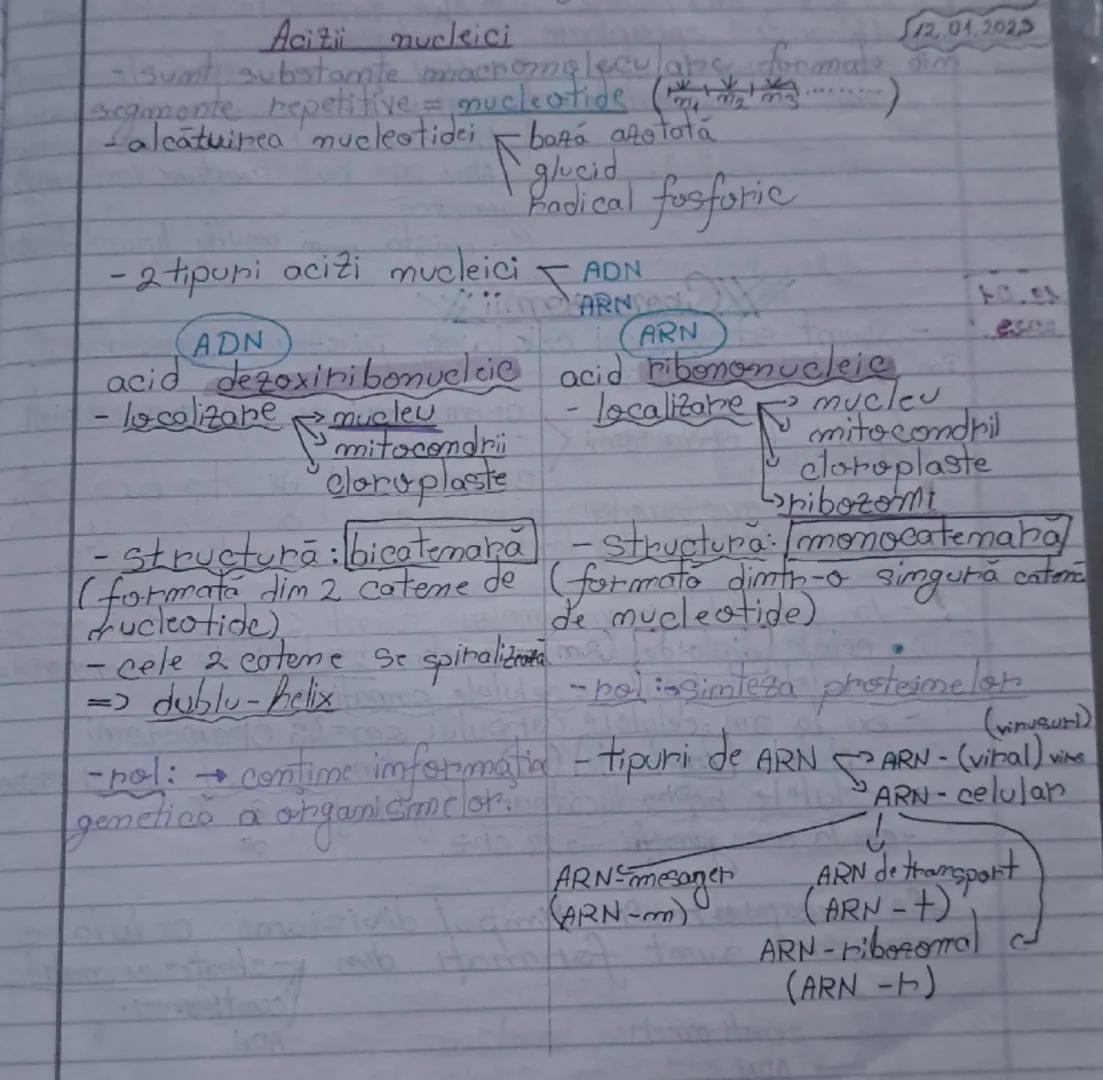 Acizii nucleici
12.01.2023
- sunt substanțe macromoleculare formate din
segmente repetitive = nucleotide (n1 + n2 + n3 ..........)
- alcătuirea nucleotidei
bază azotată
glucid
radical fosforic
- 2 tipuri acizi nucleici
ADN
ARN
ADN
acid dezoxiribonucleic
- localizare → nucleu
mitocondrii
cloroplaste
- structură: bicatenară
(formată din 2 catene de
nucleotide)
- cele 2 catene se spiralizează
=> dublu-helix
- rol: → contine informația
genetică a organismelor.
ARN
acid ribonucleic
- localizare → nucleu
mitocondrii
cloroplaste
→ ribozomi
- structură: monocatenară
(formată dintr-o singură catenă
de nucleotide)
- rol: → sinteza proteinelor
(virusuri)
- tipuri de ARN → ARN - (viral)
ARN - celular
ARN-mesager
(ARN-m)
ARN de transport
(ARN - t)
ARN - ribozomal
(ARN - r)